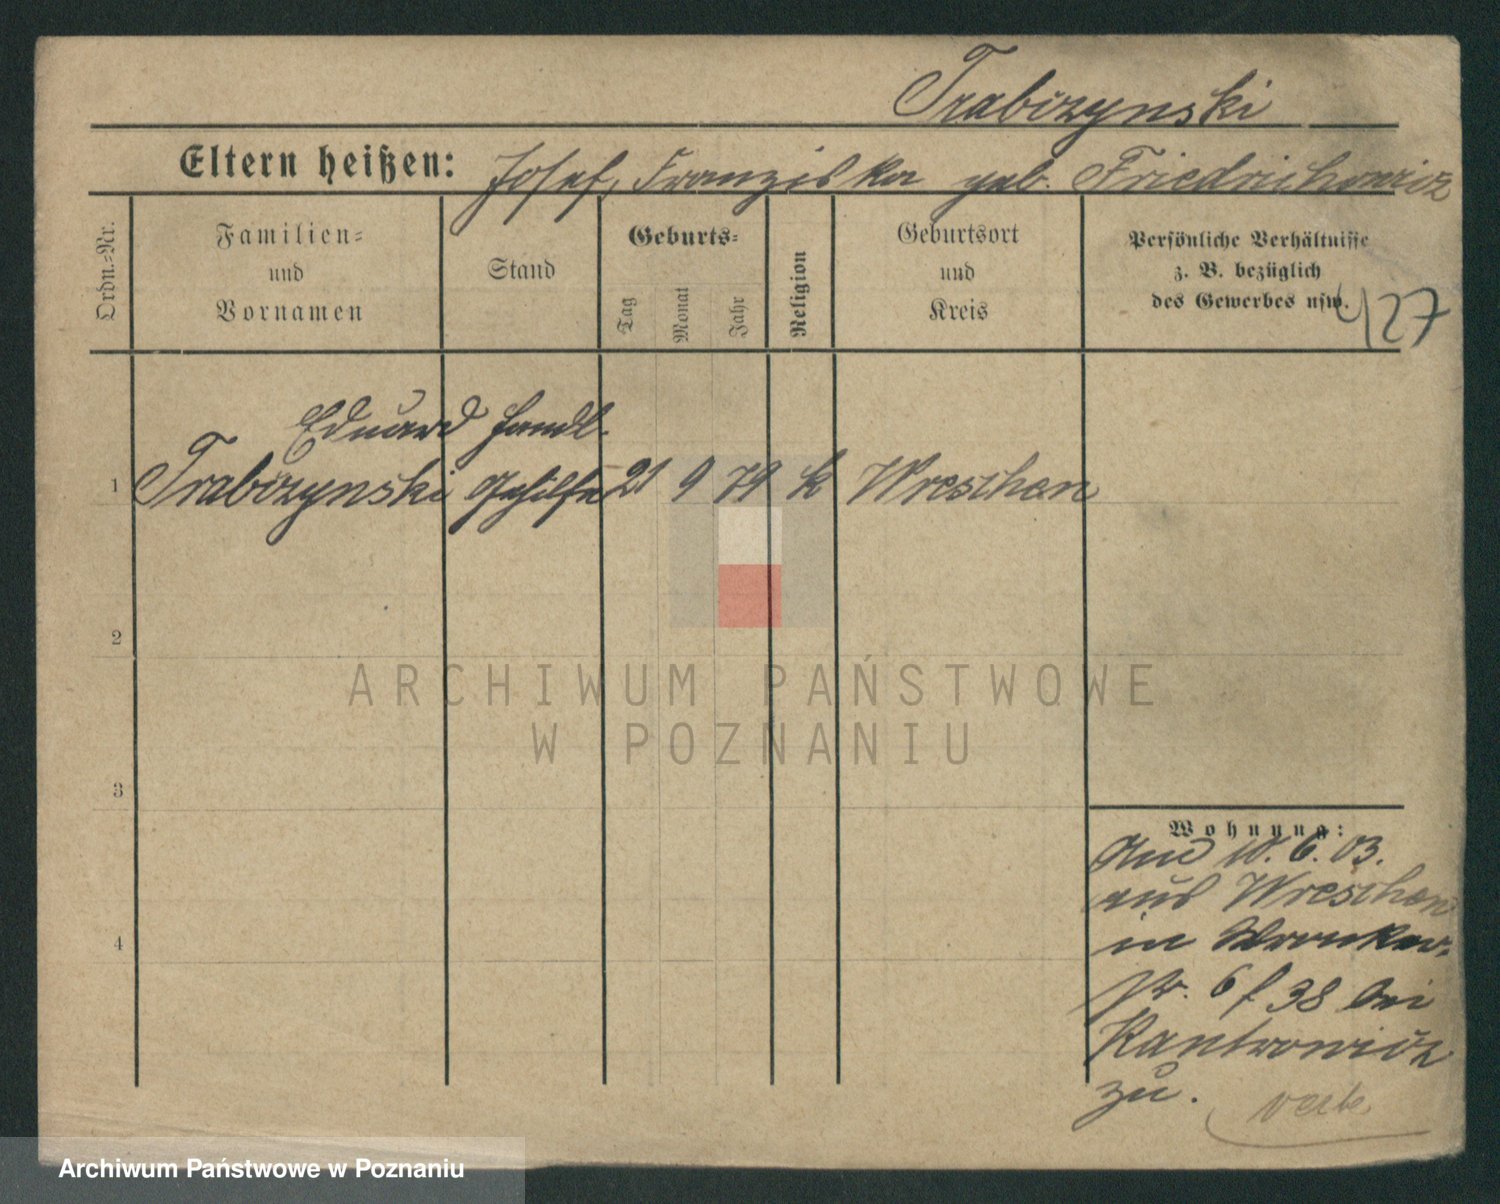 Trabczynski
Eltern heißen: Josef, Franziska geb. Friedrichowicz
Ordn.-Nr.
Familien-
und
Vornamen
Stand
Geburts-
Tag
Monat
Jahr
Religion
Geburtsort
und
Kreis
Persönliche Verhältnisse
z. B. bezüglich
des Gewerbes usw.
127
Eduard Handl.
1 Trabczynski Gehilfe 21 9 79 k Wreschen
2
ARCHIWUM PAŃSTWOWE
W POZNANIU
3
Wohnung:
10. 6. 03.
aus Wreschen
4
in Wronker-
str. 6 / 38 bei
Kantrowicz
zu.
Archiwum Państwowe w Poznaniu